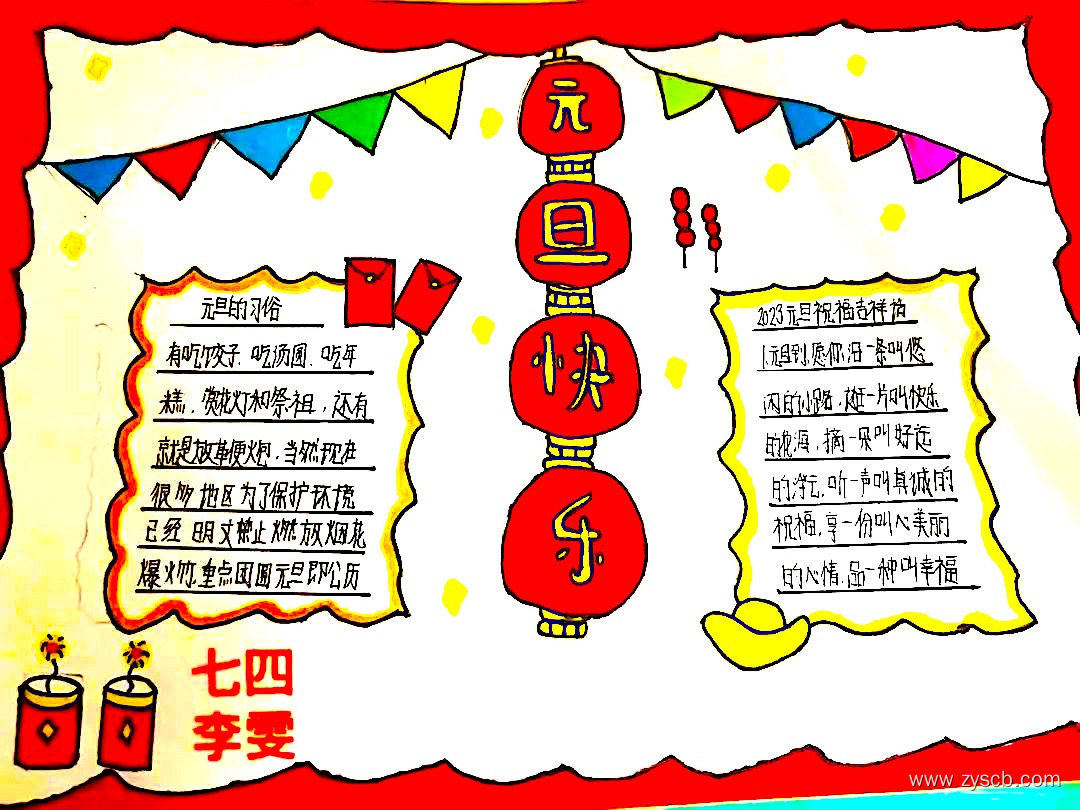 元旦快乐
元旦的习俗
有吃饺子、吃汤圆、吃年
糕、赏花灯和祭祖,还有
就是放革便火包,当然现在
很多地区为了保护环境
已经明文禁止燃放烟花
爆火竹.重点团圆元旦即公历
2023元旦祝福吉祥
1.元旦到,愿你沿一条叫悠
闲的小路,逛一片叫快乐
的花海,摘一朵叫好运
的浮云,听一声叫真诚的
祝福,享一份叫心美丽
的心情,品一种叫幸福
七四
李雯
www.zyscb.com